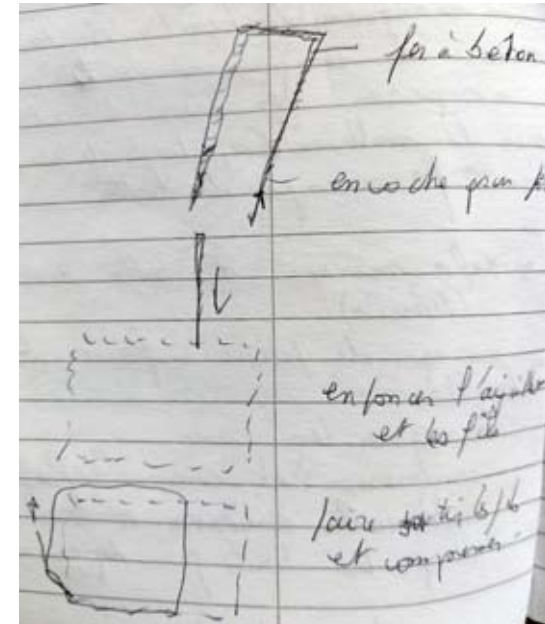 fer à béton
encoche pour
enfoncer l'aiguille
et les fils
faire sortir les fils
et compresser.